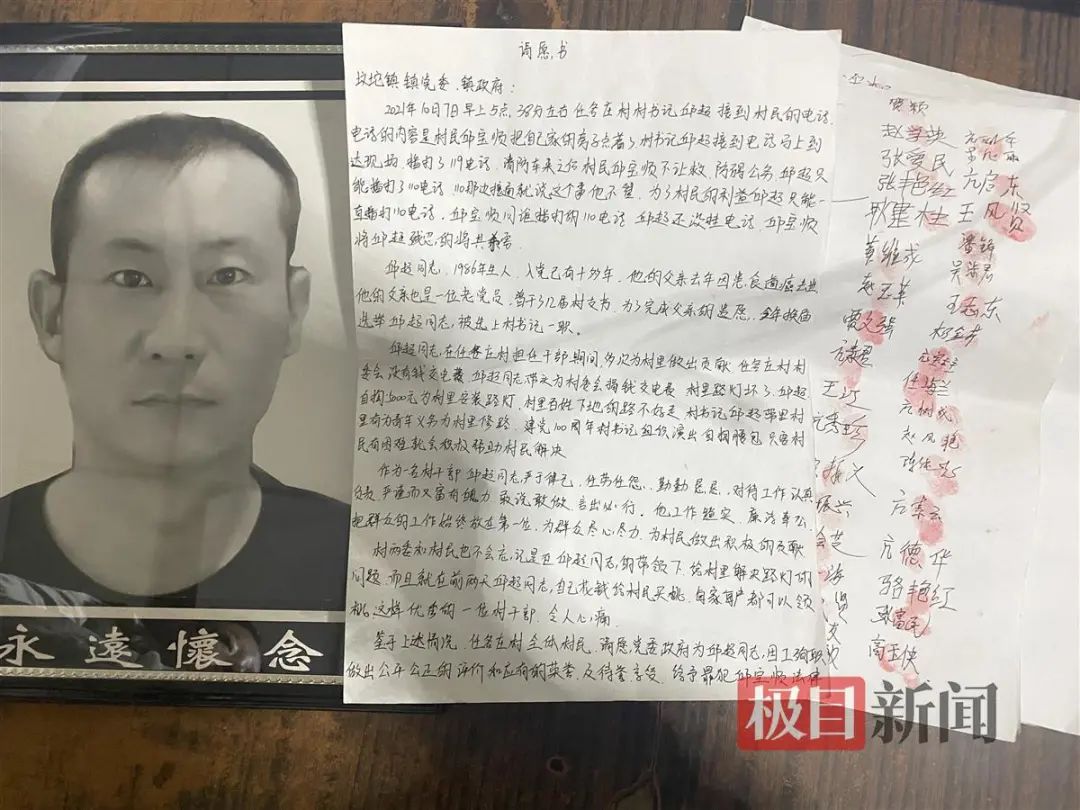 永遠懷念
请愿书
坟坨镇镇党委、镇政府:
2021年10月7日早上5点38分左右任各庄村村书记邱超接到村民的电话,
电话的内容是村民邱宝顺把自己家的房子点着了村书记邱超接到电话马上到
达现场,播打了119电话,消防车来之后村民邱宝顺不让救,防碍公务,邱超只
能播打了110电话,110那边推而就说这个事他不管,为了村民的利益邱超只能一
直播打110电话,邱宝顺问谁播打的110电话,邱超还没挂电话,邱宝顺
将邱超残忍的将其杀害.
邱超同志,1986年生人,入党已有十余年,他的父亲去年因患食道癌去世
他的父亲也是一位老党员,曾干312届村支书,为了完成父亲的遗愿,去年换届
选举邱超同志,被选上村书记一职。
邱超同志,在任各庄村担任干部期间,多次为村里做出贡献,任各庄村村
委会没有钱交电费,邱超同志多次为村委会捐钱交电费,村里路灯坏了,邱超
自掏5000元为村里安装路灯,村里百姓下地的路不好走,村书记邱超带里村
里有为青年义务为村里修路,建党100周年村书记组织演出自掏腰包,只要村
民有困难就会积极帮助村民解决
作为一名村干部,邱超同志,严于律己,任劳任怨,勤勤恳恳,对待工作认真
负责,严谨而又富有魄力,敢说敢做,言出必行,他工作踏实,廉洁奉公,
把群众的工作始终放在第一位,为群众尽心尽力,为村民做出积极的贡献
村两委和村民也不会忘记是在邱超同志的带领下,给村里解决路灯的
问题,而且就在前两天邱超同志,自己花钱给村民买桃,每家每户都可以领
桃,这样优秀的一位村干部,令人心痛.
基于上述情况,任各庄村全体村民,请愿,党委政府为邱超同志,因工殉职
做出公平公正的评价和应有的荣誉,及待遇享受,给予罪犯邱宝顺法律
贾颖
赵学英
张爱民
张艳红 亢启东
耿建柱 王凤贤
黄维成 潘锦
赵玉革 吴浩君
贾文强 王志东
任海兰
亢树成
赵凤艳
振兴
亢德华
骆艳红
张富民
高玉侠
极目新闻